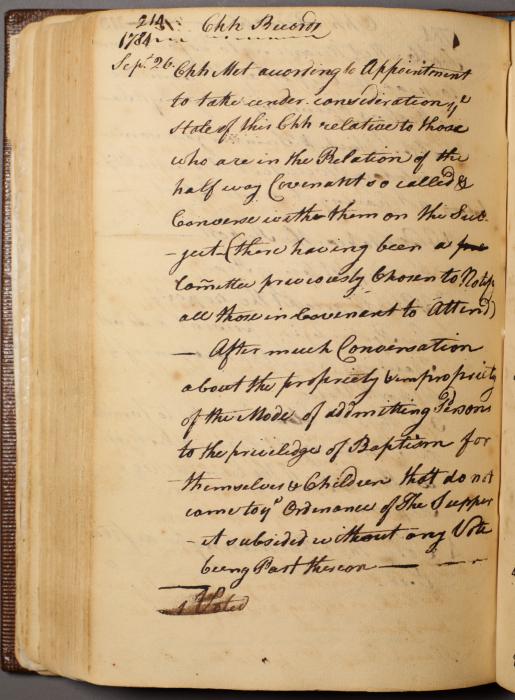 214 Chh Records
1784
Sept. 26. Chh Met according to Appointment
to take under consideration ye
State of this Chh relative to those
who are in the Relation of the
half way Covenant so called &
Converse with them on the Sub-
-ject (there having been a
Com̄ittee previously Chosen to Notify
all those in Covenant to Attend)
— After much Conversation
about the propriety & impropriety
of the Mode of addmitting Persons
to the priviledge of Baptism for
themselves & Children that do not
come to ye Ordinance of The Supper
- it subsided without any Vote
being Past thereon — — —
1 Voted